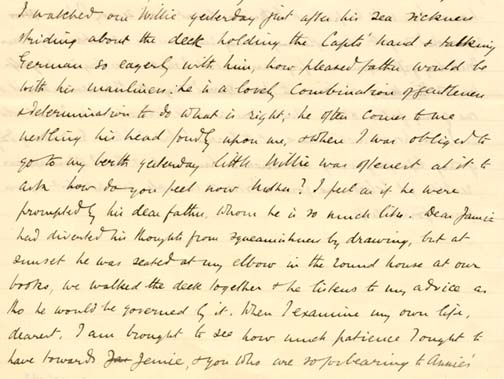 I watched our Willie yesterday just after his sea sickness
striding about the deck holding the Capts' hand & talking
German so eagerly with him, how pleased father would be
with his manliness: he is a lovely combination of gentleness
& determination to do what is right; he often comes to me
nestling his head fondly upon me, & when I was obliged to
go to my berth yesterday little Willie was oftenest at it to
ask how do you feel now Mother? I feel as if he were
prompted by his dear father, whom he is so much like. Dear Jamie
had diverted his thoughts from squeamishness by drawing, but at
sunset he was seated at my elbow in the round house at our
books, we walked the deck together & he listens to my advice as
tho he would be governed by it. When I examine my own life,
dearest, I am brought to see how much patience I ought to
have towards Jemie, & you who are so forbearing to Annie's